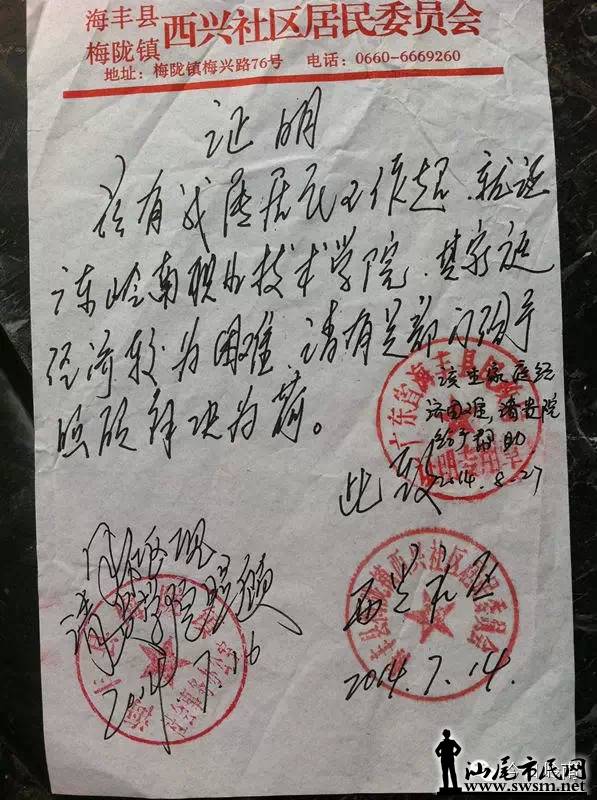 海丰县
梅陇镇 西兴社区居民委员会
地址：梅陇镇梅兴路76号 电话：0660-6669260
证明
兹有我居居民 作超 就读
广东岭南职业技术学院，其家庭
经济较为困难，请有关部门给予
照顾解决为荷。
此致
该生家庭经
济困难，请贵院
给予帮助
2014.8.27
广东省海丰县
证明专用章
情况
请贵学院照顾
2014.7.16
西兴社区
2014.7.14.
海丰县梅陇镇西兴社区居民委员会
汕尾市民网
www.swsm.net